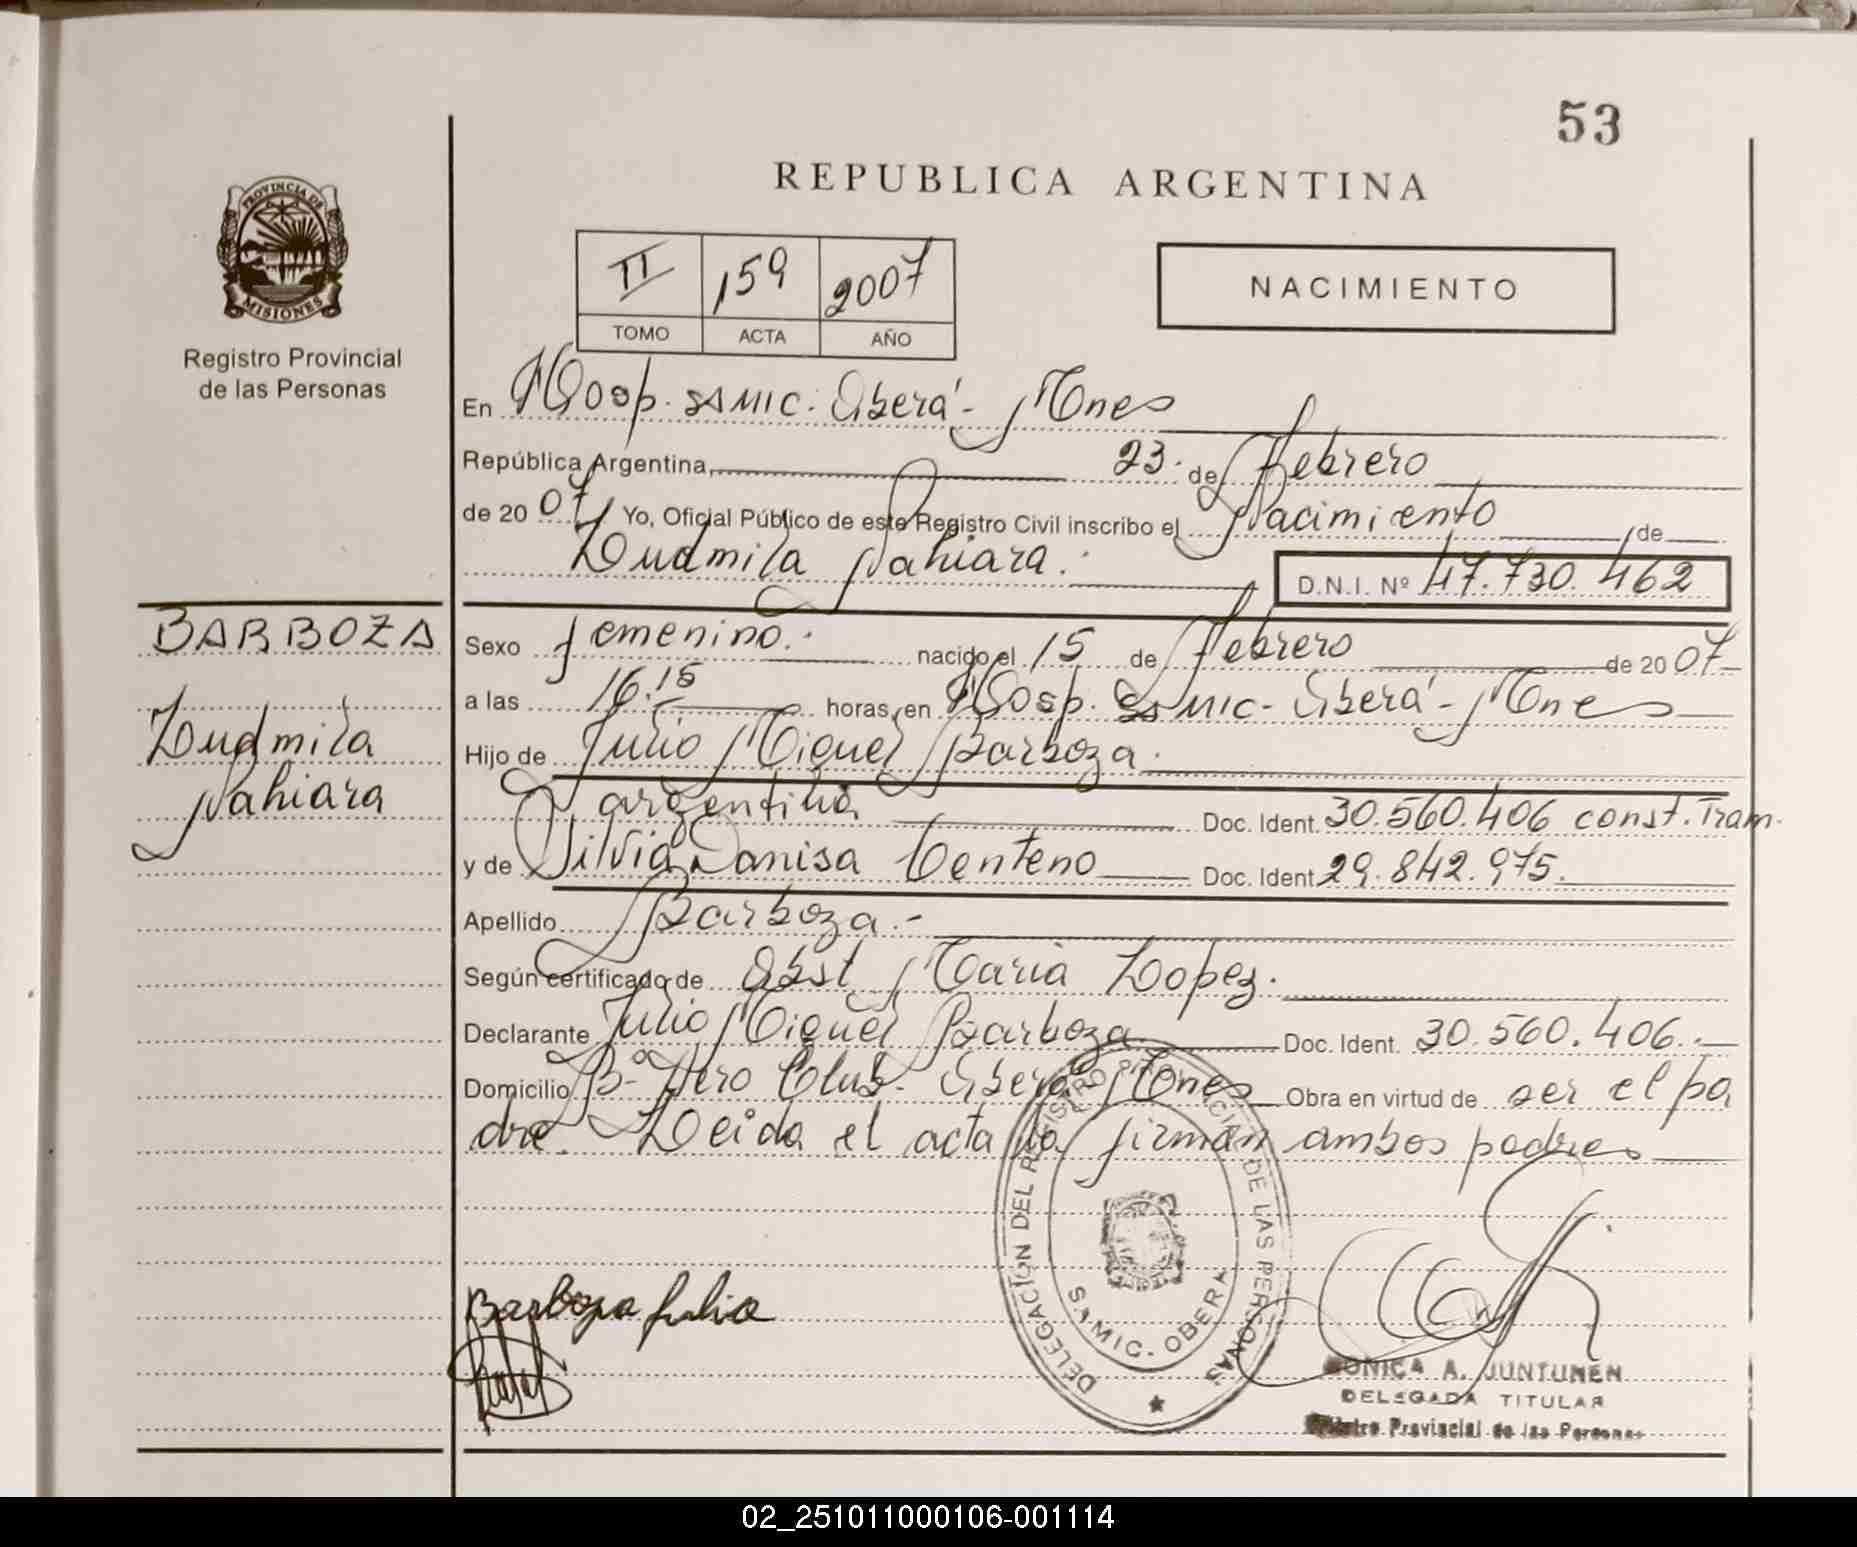 53
REPUBLICA ARGENTINA
PROVINCIA DE
MISIONES
Registro Provincial
de las Personas
II 159 2007
TOMO ACTA AÑO
NACIMIENTO
En Hosp. SAMIC. Oberá - Mnes
República Argentina, 23 de Febrero
de 2007 Yo, Oficial Público de este Registro Civil inscribo el Nacimiento de
Ludmila Nahiara. D.N.I. Nº 47.730.462
BARBOZA
Ludmila
Nahiara
Sexo femenino. nacido el 15 de Febrero de 2007
a las 16.15 horas, en Hosp. SAMIC - Oberá - Mnes
Hijo de Julio Miguel Barboza.
argentina Doc. Ident. 30.560.406 const. Tram.
y de Silvia Danisa Centeno Doc. Ident 29.842.975.
Apellido Barboza.-
Según certificado de Obst Maria Lopez.
Declarante Julio Miguel Barboza Doc. Ident. 30.560.406.
Domicilio Bº Aero Club - Oberá - Mnes Obra en virtud de ser el pa
dre. Leida el acta la firman ambos padres
Barboza Julio
DELEGACIÓN DEL REGISTRO PROVINCIAL DE LAS PERSONAS
SAMIC. OBERA
MONICA A. JUNTUNEN
DELEGADA TITULAR
Registro Provincial de las Personas
02_251011000106-001114